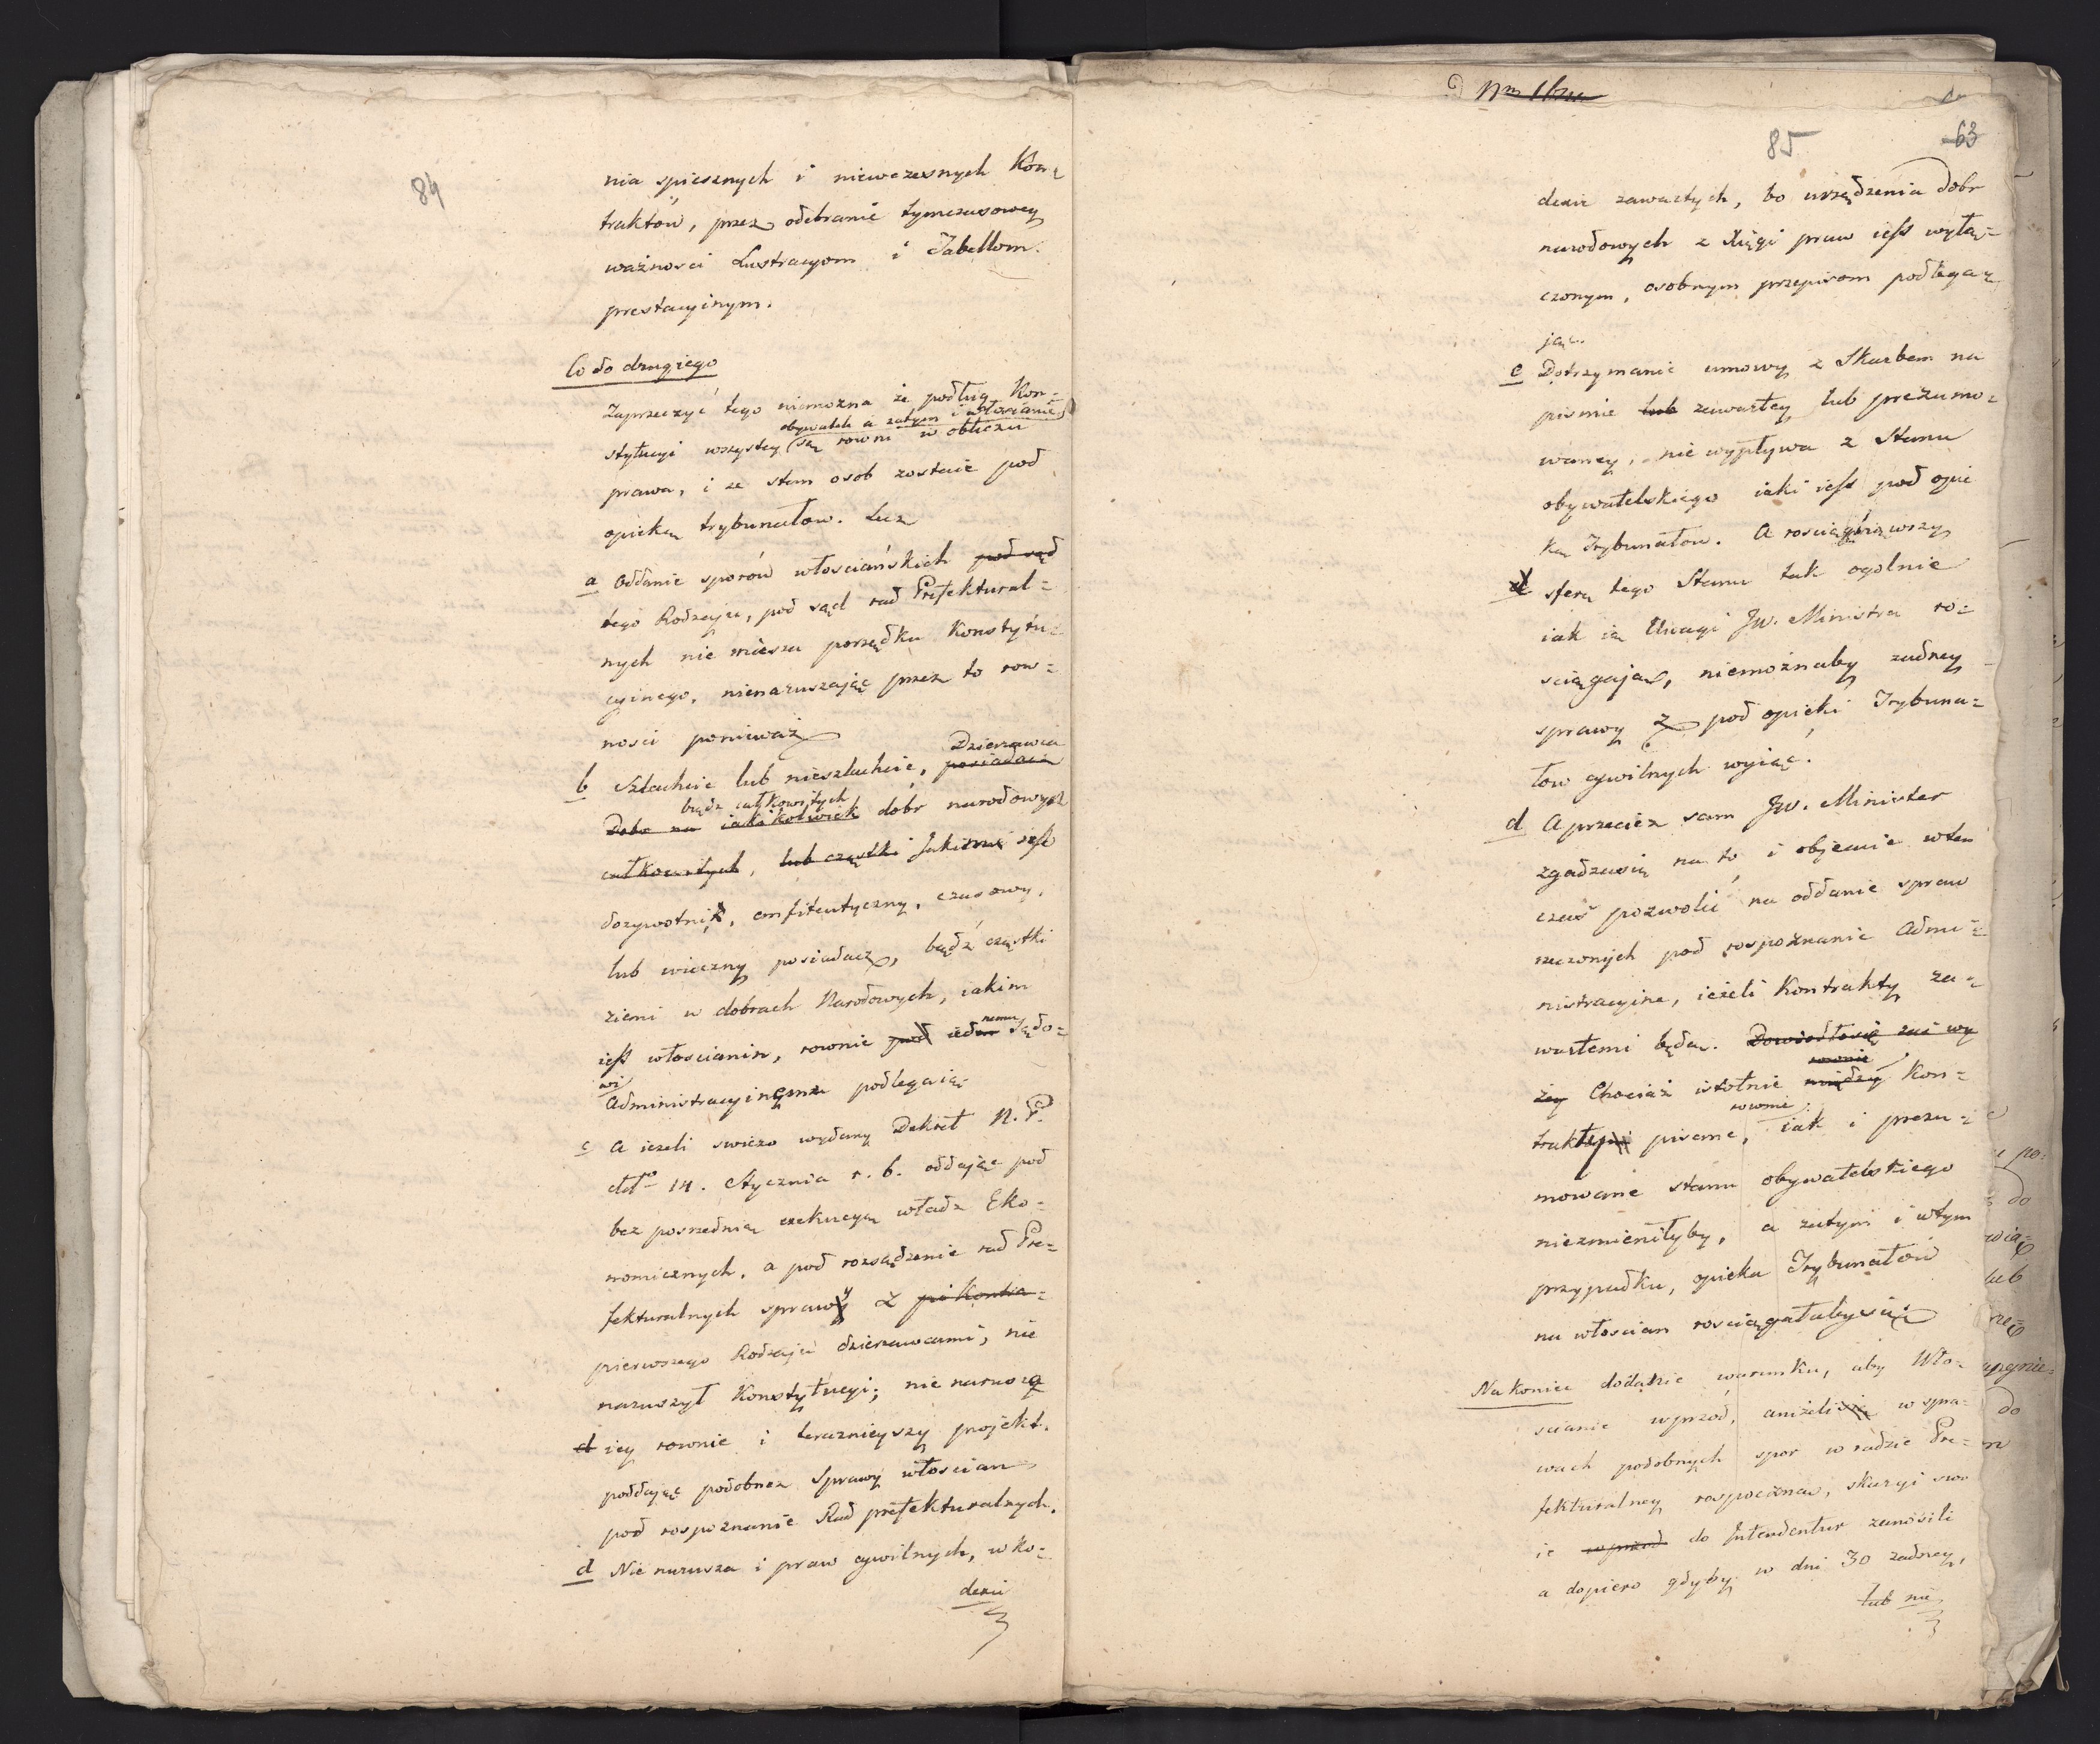 84
nia spiesznych i niewczesnych Kon=
traktow, przez odebranie tymczasowey
ważnosci Lustracyom i Tabellom
prestacyinym.
Co do drugiego
Zaprzeczyć tego niemożna że podług Kon=
obywatele a zatym i włoscianie
stytucyi wszyscy są rowni w obliczu
prawa, i że stan osob zostaie pod
opieką trybunałow. Lecz
a Oddanie sporów włosciańskich pod sąd
tego Rodzaju, pod sąd rad Prefektural=
nych nie miesza porządku Konstytu=
cyinego, nienaruszając przez to row=
nosci ponieważ
Dzierzawca
b Szlachcic lub nieszlachcic, posiadacz
bądz całkowitych
Dobr na iakikolwiek dobr narodowych
całkowitych, lub cząstki Jakim iest
dozywotni, emfiteutyczny, czasowy,
lub wieczny posiadacz, bądź cząstki
ziemi w dobrach Narodowych, iakim
nemu
iest włoscianin, rownie pod ieden Sądo=
wi
Administracyinemu podlegaią
c a ieżeli swiezo wydany Dekret N. P.
ddto 14. Stycznia r. b. oddając pod
bez posrednią exekucyą władz Eko=
nomicznych, a pod rozsądzenie rad Pre=
fekturalnych sprawy z po Kontra=
pierwszego Rodzaju dzierzawcami, nie
naruszył Konstytucyi; nie narusza
d iey rownie i teraznieyszy projekt.
poddając podobnez Sprawy włoscian
pod rospoznanie Rad prefekturalnych.
d Nie narusza i praw cywilnych, w Ko=
dexie
85
63
dexie zawartych, bo urządzenia dobr
narodowych z Xięgi praw iest wyłą=
czonym, osobnym przepisom podlega=
jąc.
e Dotrzymanie umowy z Skarbem na
pismie lub zawartey lub prezumo=
waney, nie wypływa z Stanu
obywatelskiego iaki iest pod opie
ką Trybunałow. A rosciągnąwszy
d sferę tego Stanu tak ogolnie
iak ią Uwagi JW. Ministra ro=
sciągają, niemożnaby żadney
sprawy z pod opieki Trybuna=
łow cywilnych wyiąć.
d A przecież sam JW. Minister
zgadzasię na to, i obiecuie wten
czas pozwolić na oddanie spraw
rzeczonych pod rospoznanie Admi=
nistracyine, ieżeli Kontrakty za=
wartemi będą. Dowiodłosię zas wy
rownie
żey Chociaż istotnie między Kon=
rownie
trakty pisemne, iak i prezu=
mowane stanu obywatelskiego
niezmieniłyby, a zatym i wtym
przypadku, opieka Trybunałów
na włoscian rosciągałabysię.
Nakoniec dodanie warunku, aby Wło=
scianie wprzod, aniżeli się w spra=
wach podobnych spor w radzie Pre=
fekturalney rospoczną, skargi swo
ie wprzod do Intendentur zanosili
a dopiero gdyby w dni 30 żadney,
lub nie